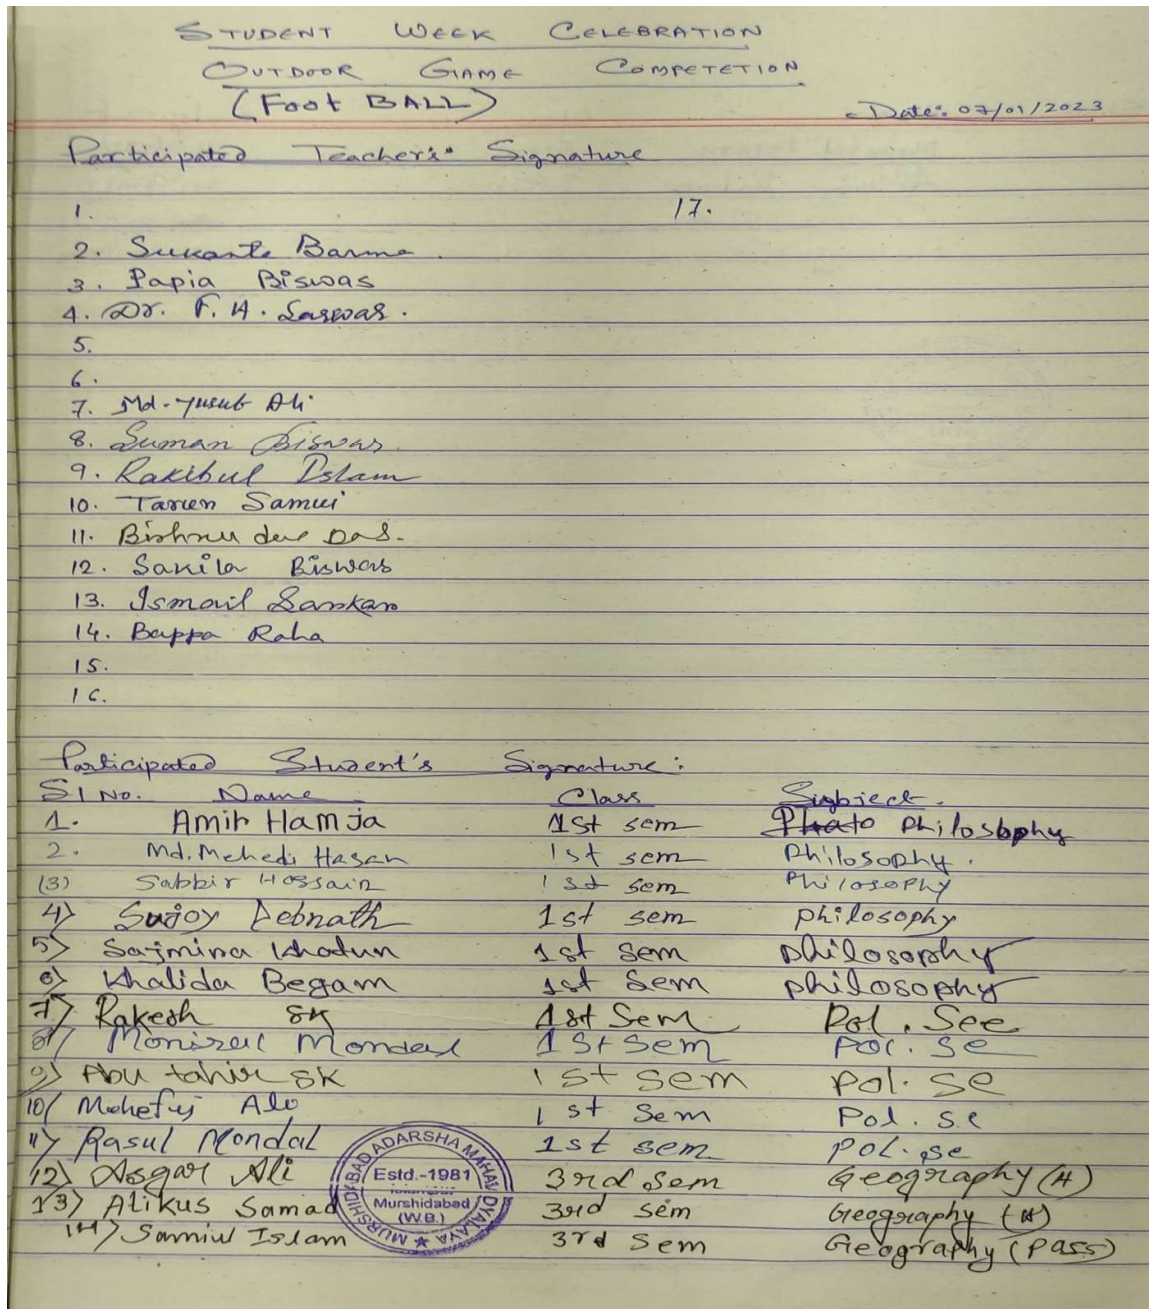 STUDENT WEEK CELEBRATION
OUTDOOR GAME COMPETETION
(Foot BALL)
Date: 07/01/2023
Participated Teacher's Signature
1. 17.
2. Sukanta Barma
3. Papia Biswas
4. Dr. F. H.
5.
6.
7. Md. Yusub Ali
8. Suman Biswas
9. Rakibul Islam
10. Tarun Samui
11. Bishnu dev Das.
12. Sakila Biswas
13. Ismail Sarkar
14. Bappa Raha
15.
16.
Participated Student's Signature:
Sl No. Name Class Subject.
1. Amir Hamja 1st sem Philosophy
2. Md. Mehedi Hasan 1st sem Philosophy.
(3) Sabbir Hossain 1st sem Philosophy
4) Sujoy Debnath 1st sem philosophy
5) Sajmina Khatun 1st Sem philosophy
6) Khalida Begam 1st Sem philosophy
7) Rakesh SK 1st Sem Pol. See
8) Monirul Mondal 1st Sem Pol. Se
9) Abu tahir SK 1st sem Pol. Se
10) Ali 1st Sem Pol. Se
11) Rasul Mondal 1st sem pol. se
12) Asgar Ali 3rd Sem Geography (H)
13) Atikus Samad 3rd sem Geography (H)
14) Samiul Islam 3rd Sem Geography (Pass)
MURSHIDABAD ADARSHA MAHAVIDYALAYA
Estd.-1981
Islampur
Murshidabad
(W.B.)